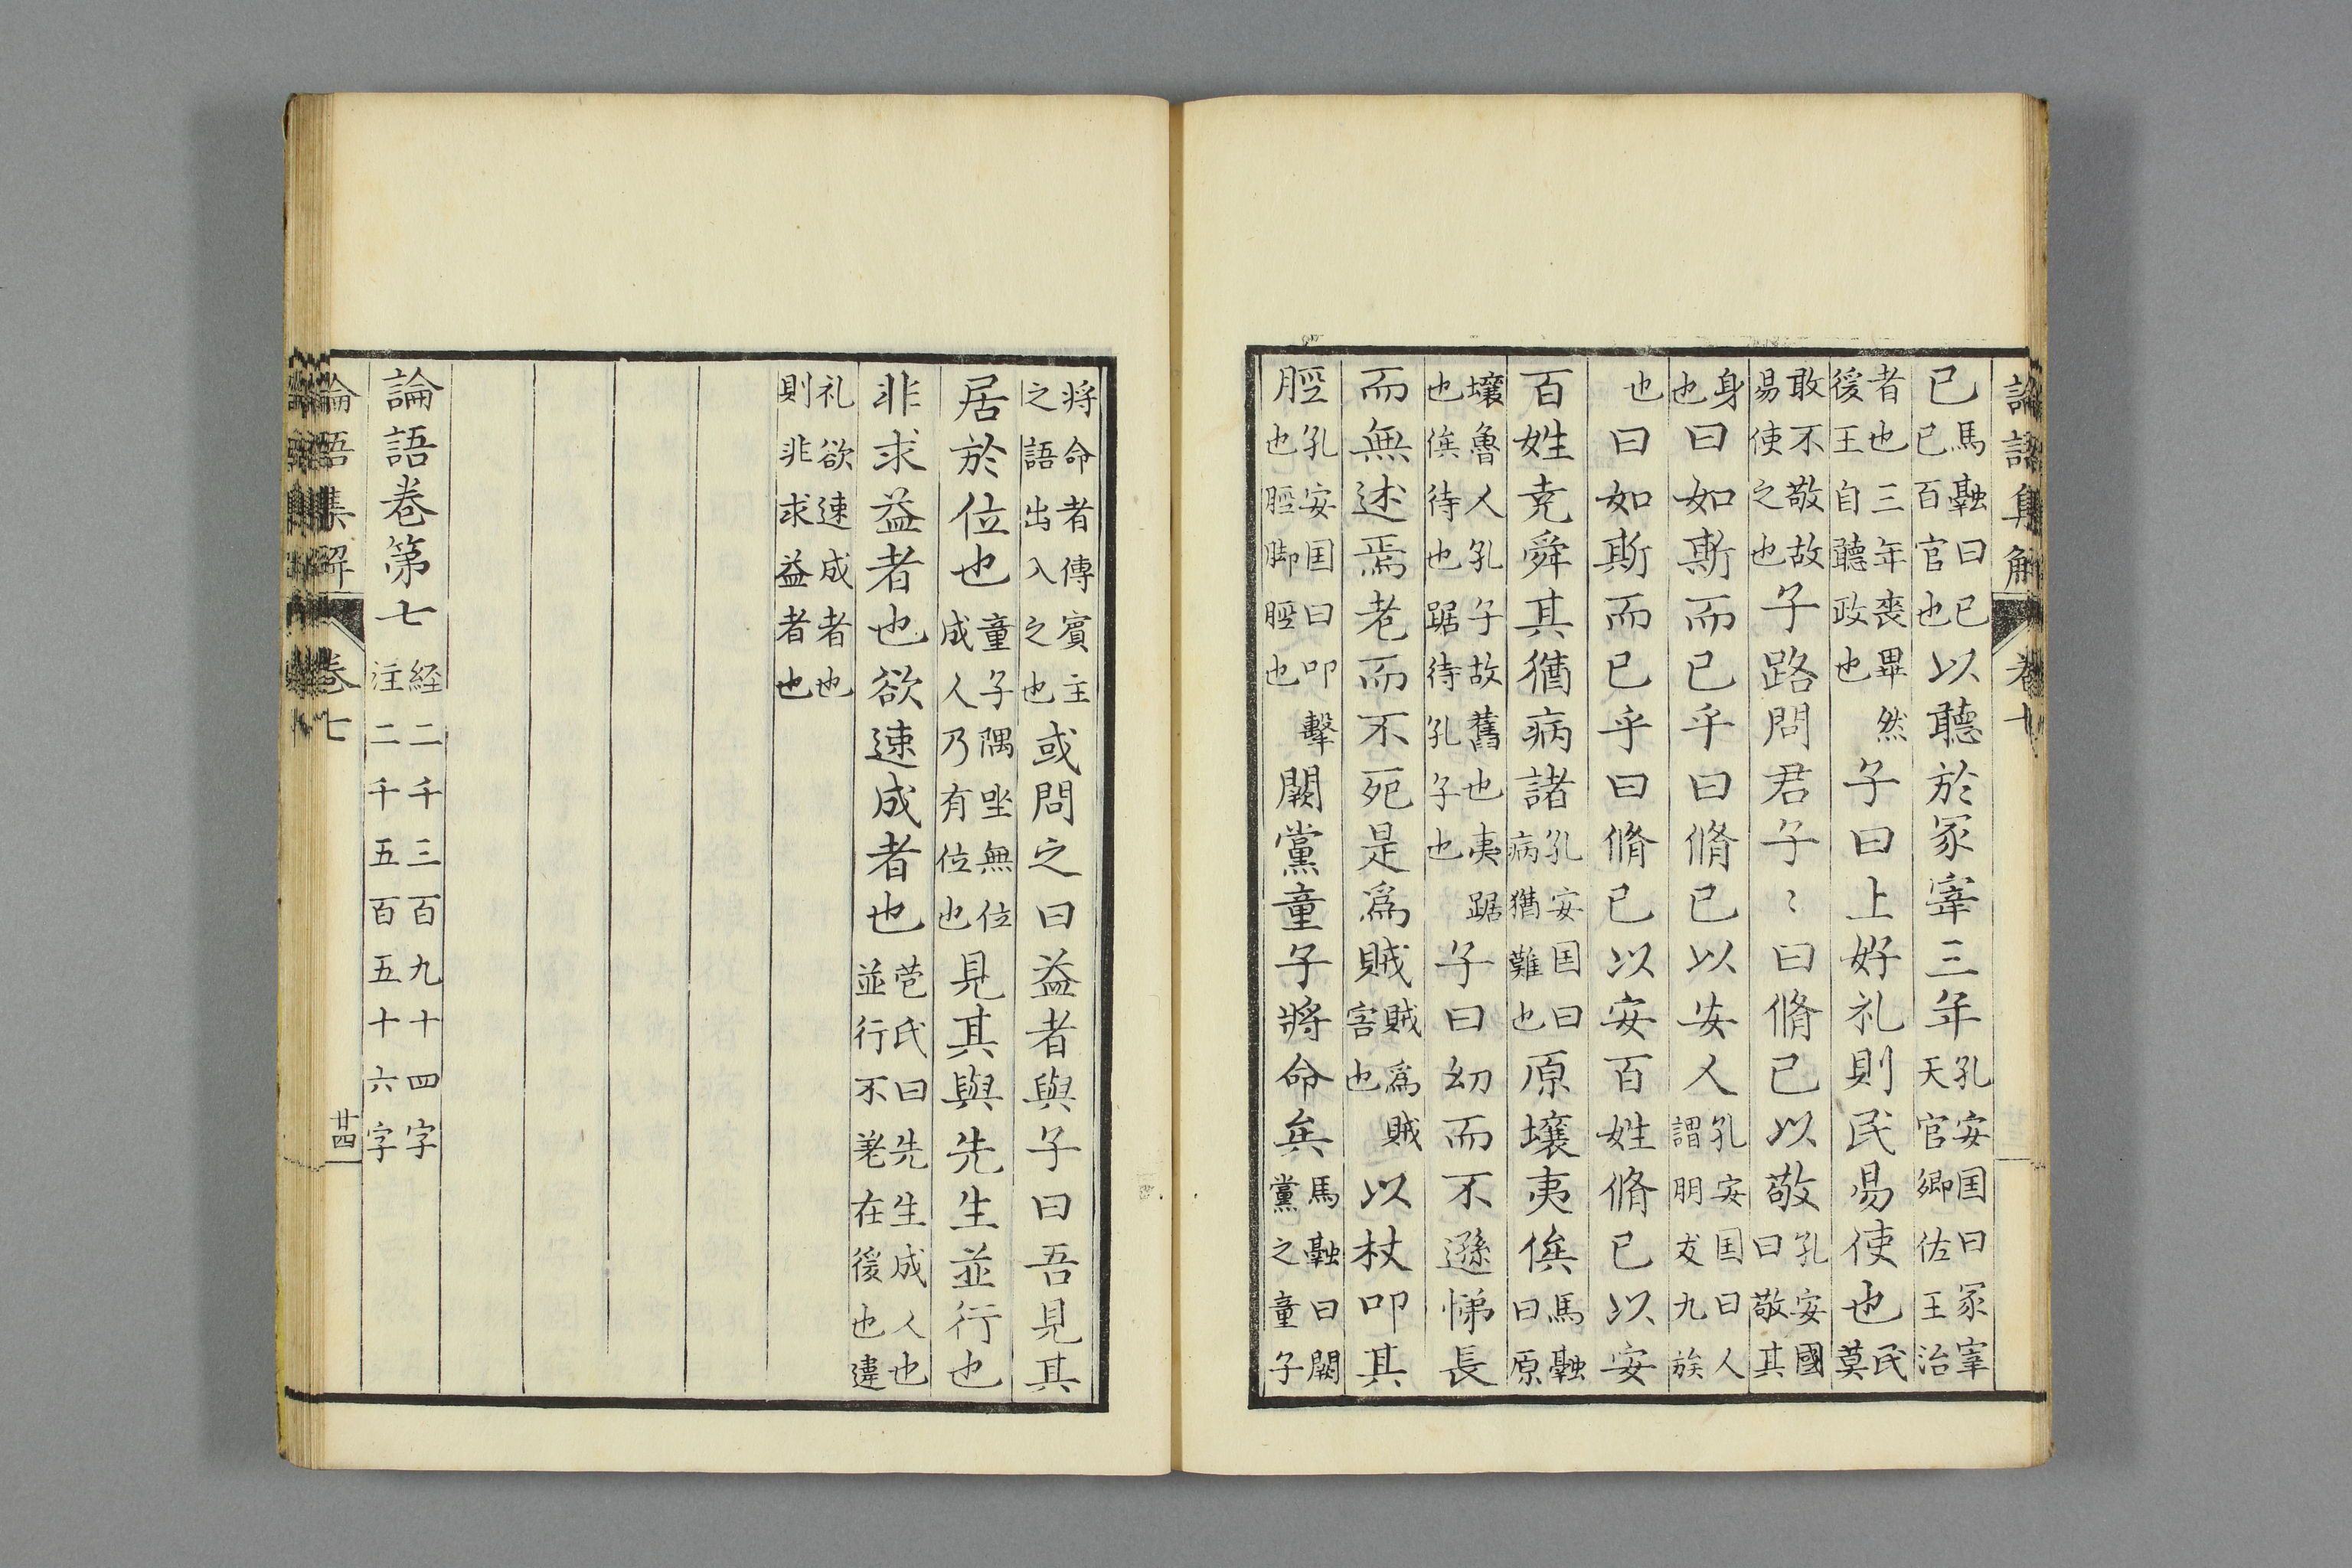 論語集解 卷七
已馬融曰已已百官也以聽於冢宰三年孔安囯曰冢宰天官卿佐王治
者也三年喪畢然後王自聽政也子曰上好礼則民易使也民莫
敢不敬故易使之也子路問君子〻曰脩己以敬孔安國曰敬其
身也曰如斯而已乎曰脩己以安人孔安囯曰人謂朋友九族
也曰如斯而已乎曰脩己以安百姓脩己以安
百姓尭舜其猶病諸孔安囯曰病猶難也原壤夷俟馬融曰原
壤魯人孔子故舊也夷踞也俟待也踞待孔子也子曰幼而不遜悌長
而無述焉老而不死是爲賊賊爲賊害也以杖叩其
脛孔安囯曰叩擊也脛脚脛也闕黨童子將命矣馬融曰闕黨之童子
将命者傳賓主之語出入之也或問之曰益者與子曰吾見其
居於位也童子隅坐無位成人乃有位也見其與先生並行也
非求益者也欲速成者也苞氏曰先生成人也並行不差在後也違
礼欲速成者也則非求益者也
論語卷第七 経二千三百九十四字 注二千五百五十六字
論語集解 卷七 廿四